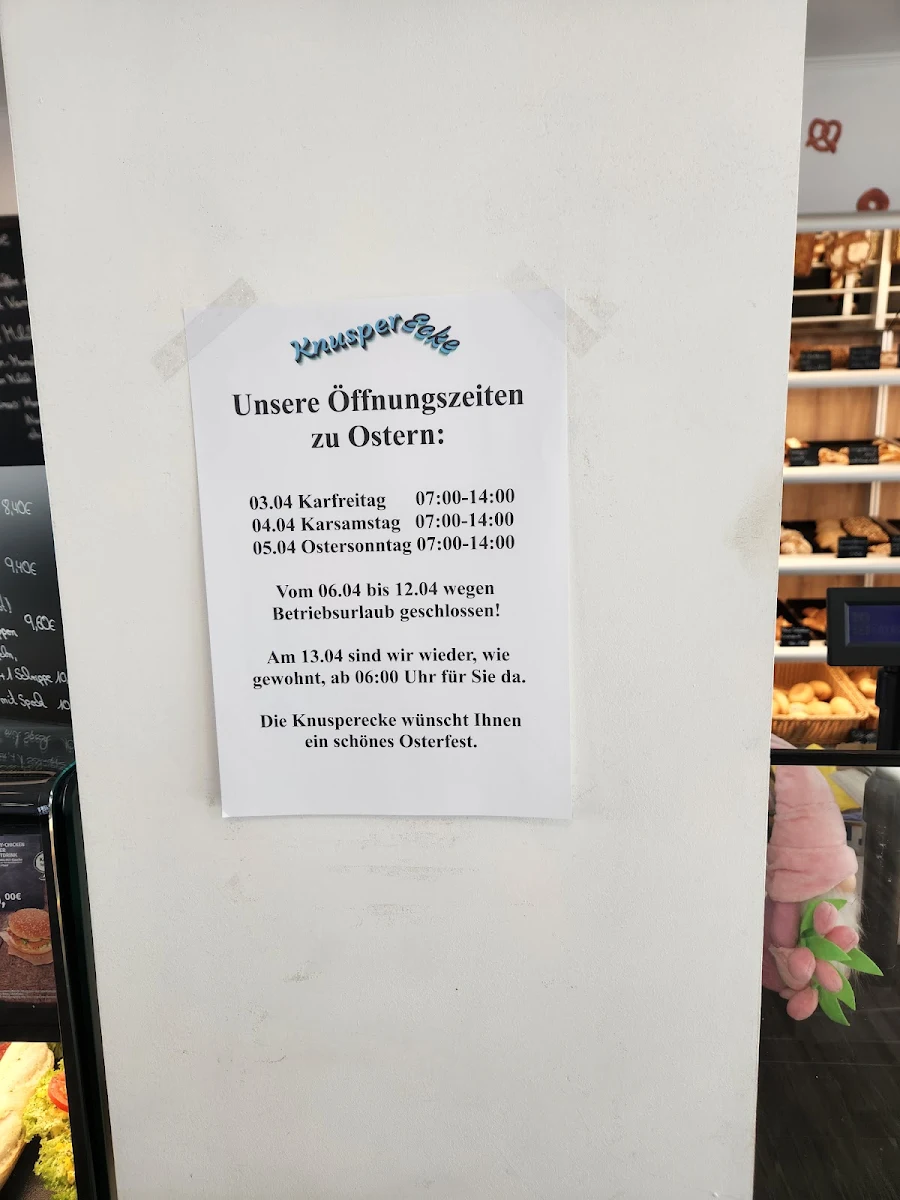 KnusperEcke
Unsere Öffnungszeiten
zu Ostern:
03.04 Karfreitag 07:00-14:00
04.04 Karsamstag 07:00-14:00
05.04 Ostersonntag 07:00-14:00
Vom 06.04 bis 12.04 wegen
Betriebsurlaub geschlossen!
Am 13.04 sind wir wieder, wie
gewohnt, ab 06:00 Uhr für Sie da.
Die Knusperecke wünscht Ihnen
ein schönes Osterfest.
8,40€
9,40€
9,60€
,00€